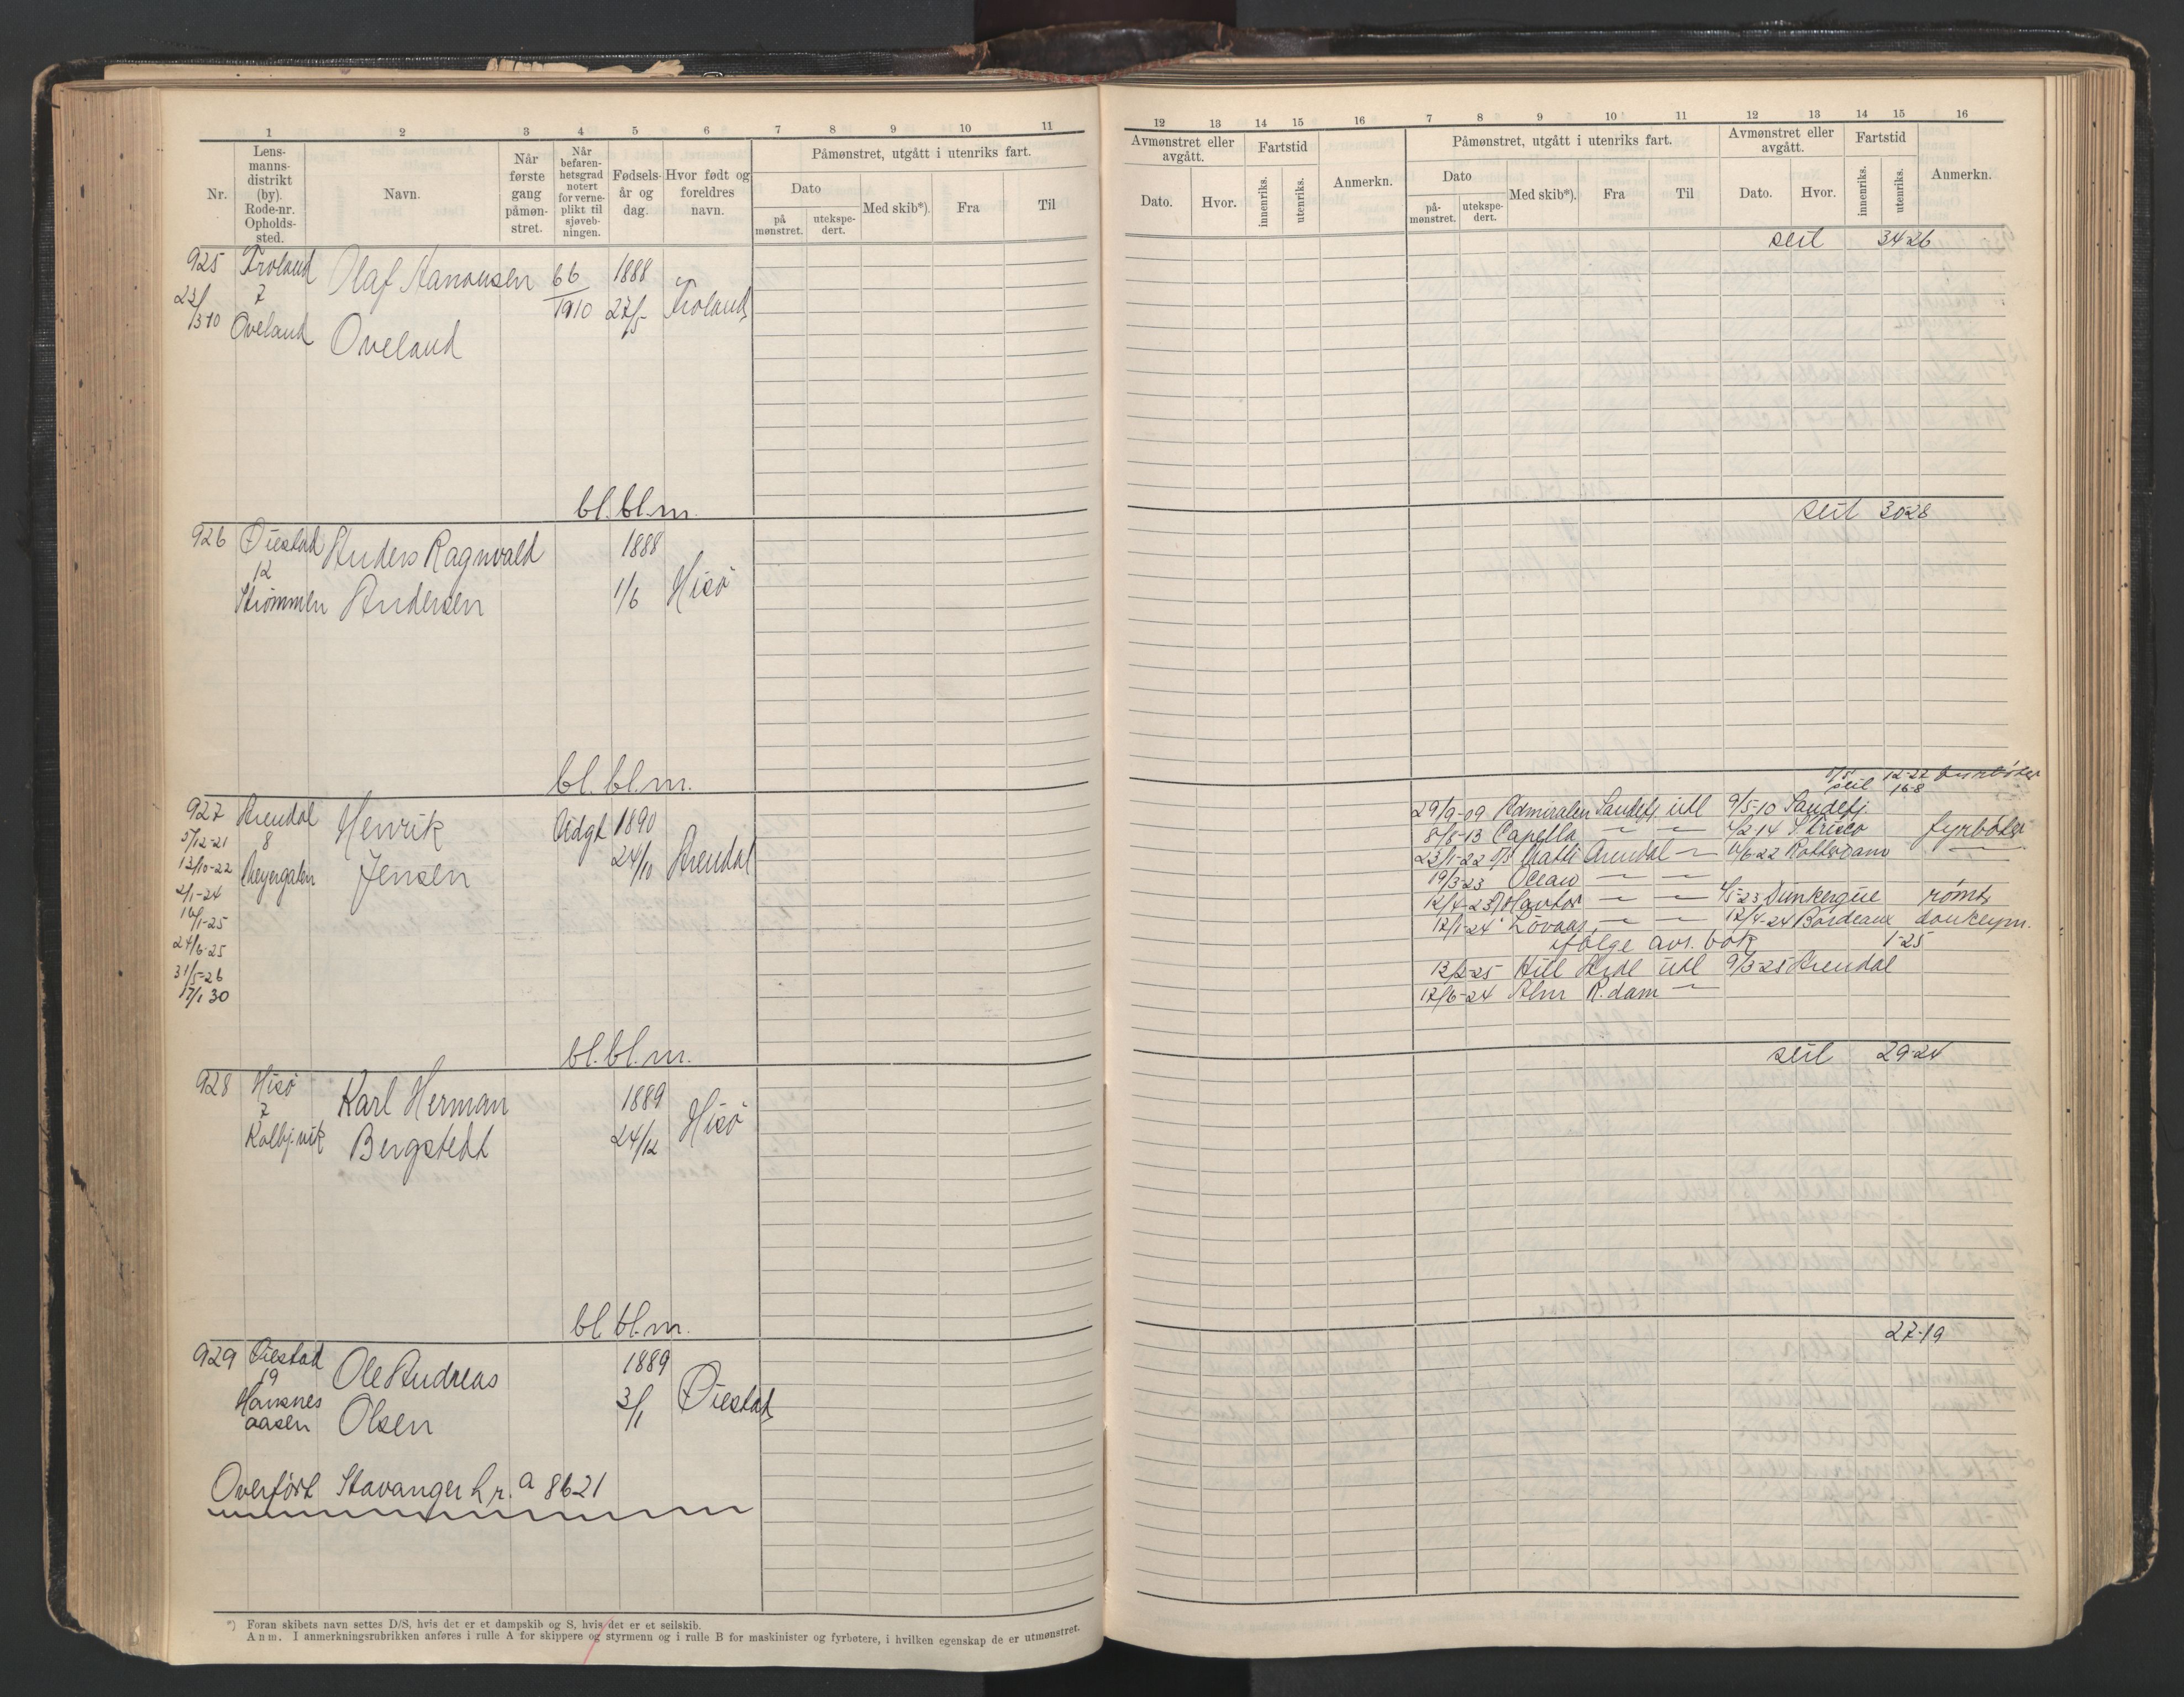 1 2 3 4 5 6 7 8 9 10 11
Nr.
Lens-
manns-
distrikt
(by).
Rode-nr.
Opholds-
sted.
Navn.
Når
første
gang
påmøn-
stret.
Når
befaren-
hetsgrad
notert
for verne-
plikt til
sjøveb-
ningen.
Fødsels-
år og
dag.
Hvor født og
foreldres
navn.
Påmønstret, utgått i utenriks fart.
Dato
på
mønstret.
utekspe-
dert.
Med skib*).
Fra
Til
925 Froland Olaf Aanonsen 66 1888
23/ 7
1910 27/5 Froland
/3 10 Oveland Oveland
bl. bl. m.
926 Øiestad Anders Ragnvald 1888
12
Strømmen Andersen 1/6 Hisö
bl. bl. m.
927 Arendal Henrik Udgt 1890
5/12-21 8
24/10 Arendal
13/10-22 Jensen
2/1-24
16/1-25
24/6-25
31/5-26
17/1 30
bl. bl. m.
928 Hisö Karl Herman 1889
7 Hisö
Kolbj.vik Bergstedt 24/12
bl. bl. m.
929 Øiestad Ole Andreas 1889
19
Hansnes 3/1 Øiestad
aasen Olsen
Overført Stavanger h. r. a 8621
*) Foran skibets navn settes D/S, hvis det er et dampskib og S, hvis det er et seilskib.
Anm. I anmerkningsrubrikken anføres i rulle A for skippere og styrmenn og i rulle B for maskinister og fyrbøtere, i hvilken egenskap de er utmønstret.
12 13 14 15 16 7 8 9 10 11 12 13 14 15 16
Avmønstret eller
avgått.
Dato.
Hvor.
Fartstid
innenriks.
utenriks.
Anmerkn.
Påmønstret, utgått i utenriks fart.
Dato
på-
mønstret.
utekspe-
dert.
Med skib*).
Fra
Til
Avmønstret eller
avgått.
Dato.
Hvor.
Fartstid
innenriks.
utenriks.
Anmerkn.
seil 34-26
seil 30-28
D/S 12-22
seil 16-8
29/9-09 Admiralen Sandefj. utl 9/5-10 Sandefj.
8/8-13 Capella 4/2 14 fyrböter
23/1-22 D/S Arendal 11/6-22 Rotterdam
19/3-23 Ocean
12/4-23 Havtor 4/5-23 Dunkerque römt
17/1-24 Lövaas 12/4-24 Bordeaux donkeym.
ifölge avr. bok 1-25
12/2-25 utl 9/3-25 Arendal
17/6-24 Alm R.dam
seil 29-24
27-19